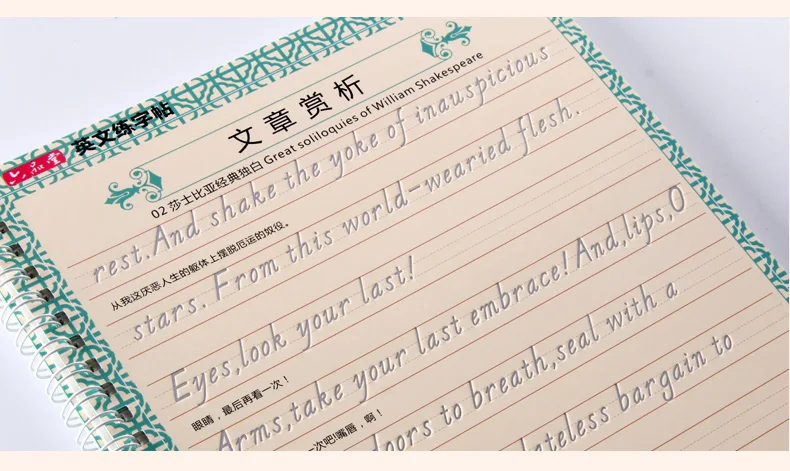 六品堂
英文练字帖
文章赏析
02 莎士比亚经典独白 Great soliloquies of William Shakespeare
rest.And shake the yoke of inauspicious
从我这厌恶人生的躯体上摆脱厄运的奴役。
stars. From this world-wearied flesh.
Eyes,look your last!
眼睛，最后再看一次！
Arms,take your last embrace! And,lips,O
一次吧!嘴唇，啊！
doors to breath,seal with a
dateless bargain to